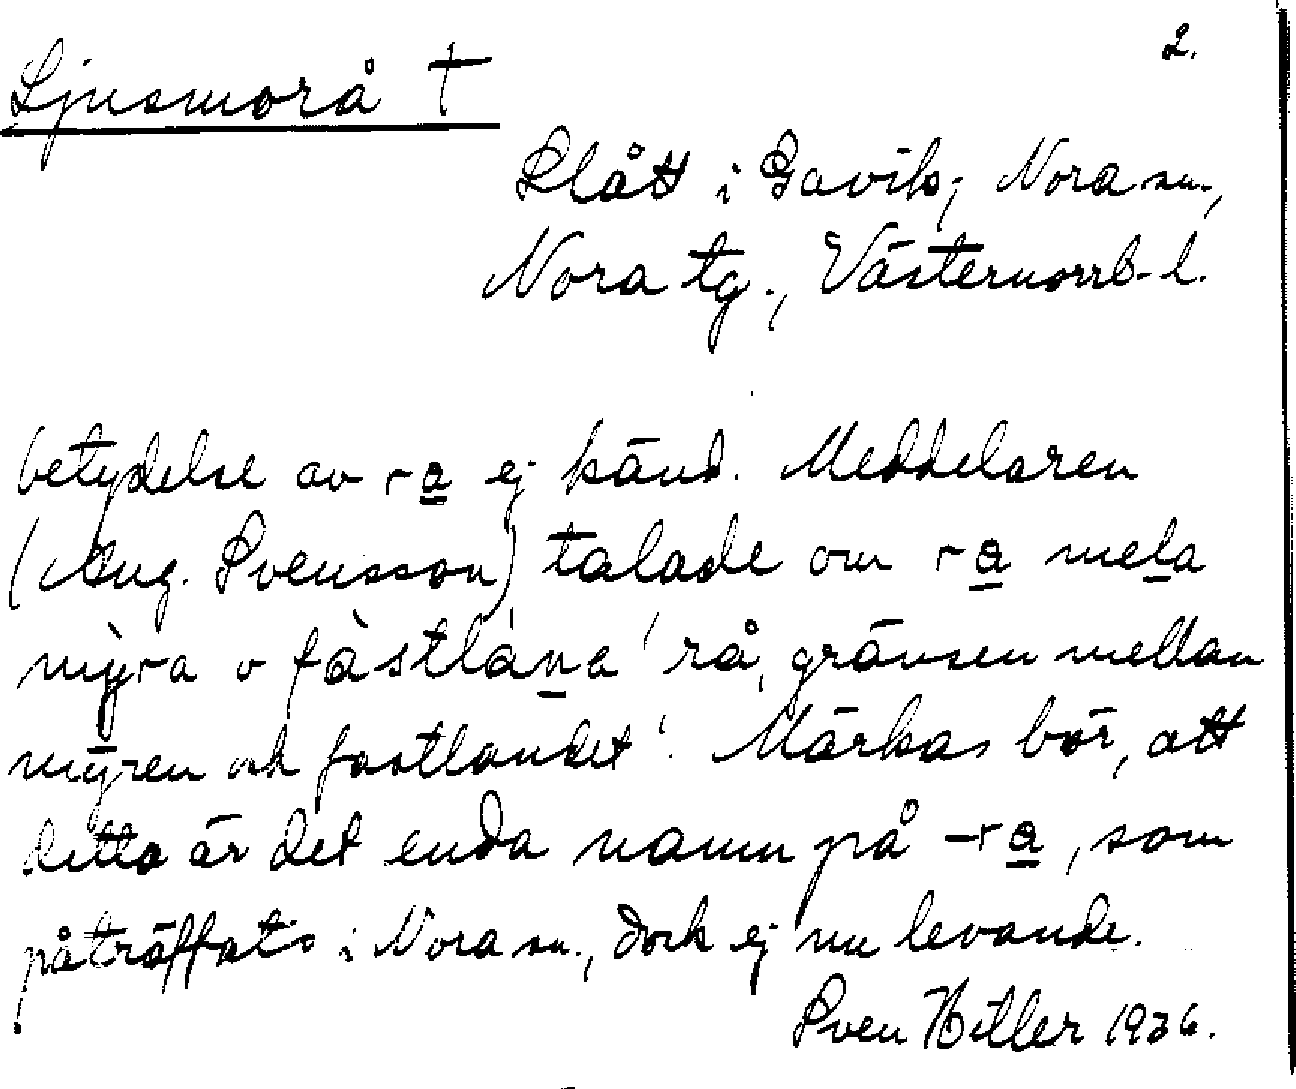 2.
Ljusmorå †
Slått i Gavik, Nora sn.,
Nora tg., Västernorrl. l.
betydelse av -ra ej känd. Meddelaren
(Aug. Svensson) talade om ra mela
myra o fastlana 'rå, gränsen mellan
myren och fastlandet'. Märkas bör, att
detta är det enda namn på -ra, som
påträffats i Nora sn., dock ej nu levande.
Sven 1936.